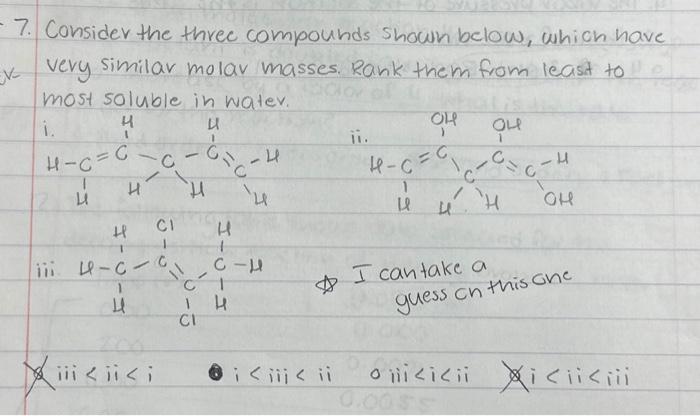 7. Consider the three compounds shown below, which have
very similar molar masses. Rank them from least to
most soluble in water.
i. H H
H-C=C-C-C=C-H
H H H H
ii. OH OH
H-C=C-C-C=C-H
H H H OH
iii H Cl H
H-C-C=C-C-H
H Cl H
☆ I can take a
guess on this one
iii < ii < i i < iii < ii iii < i < ii i < ii < iii